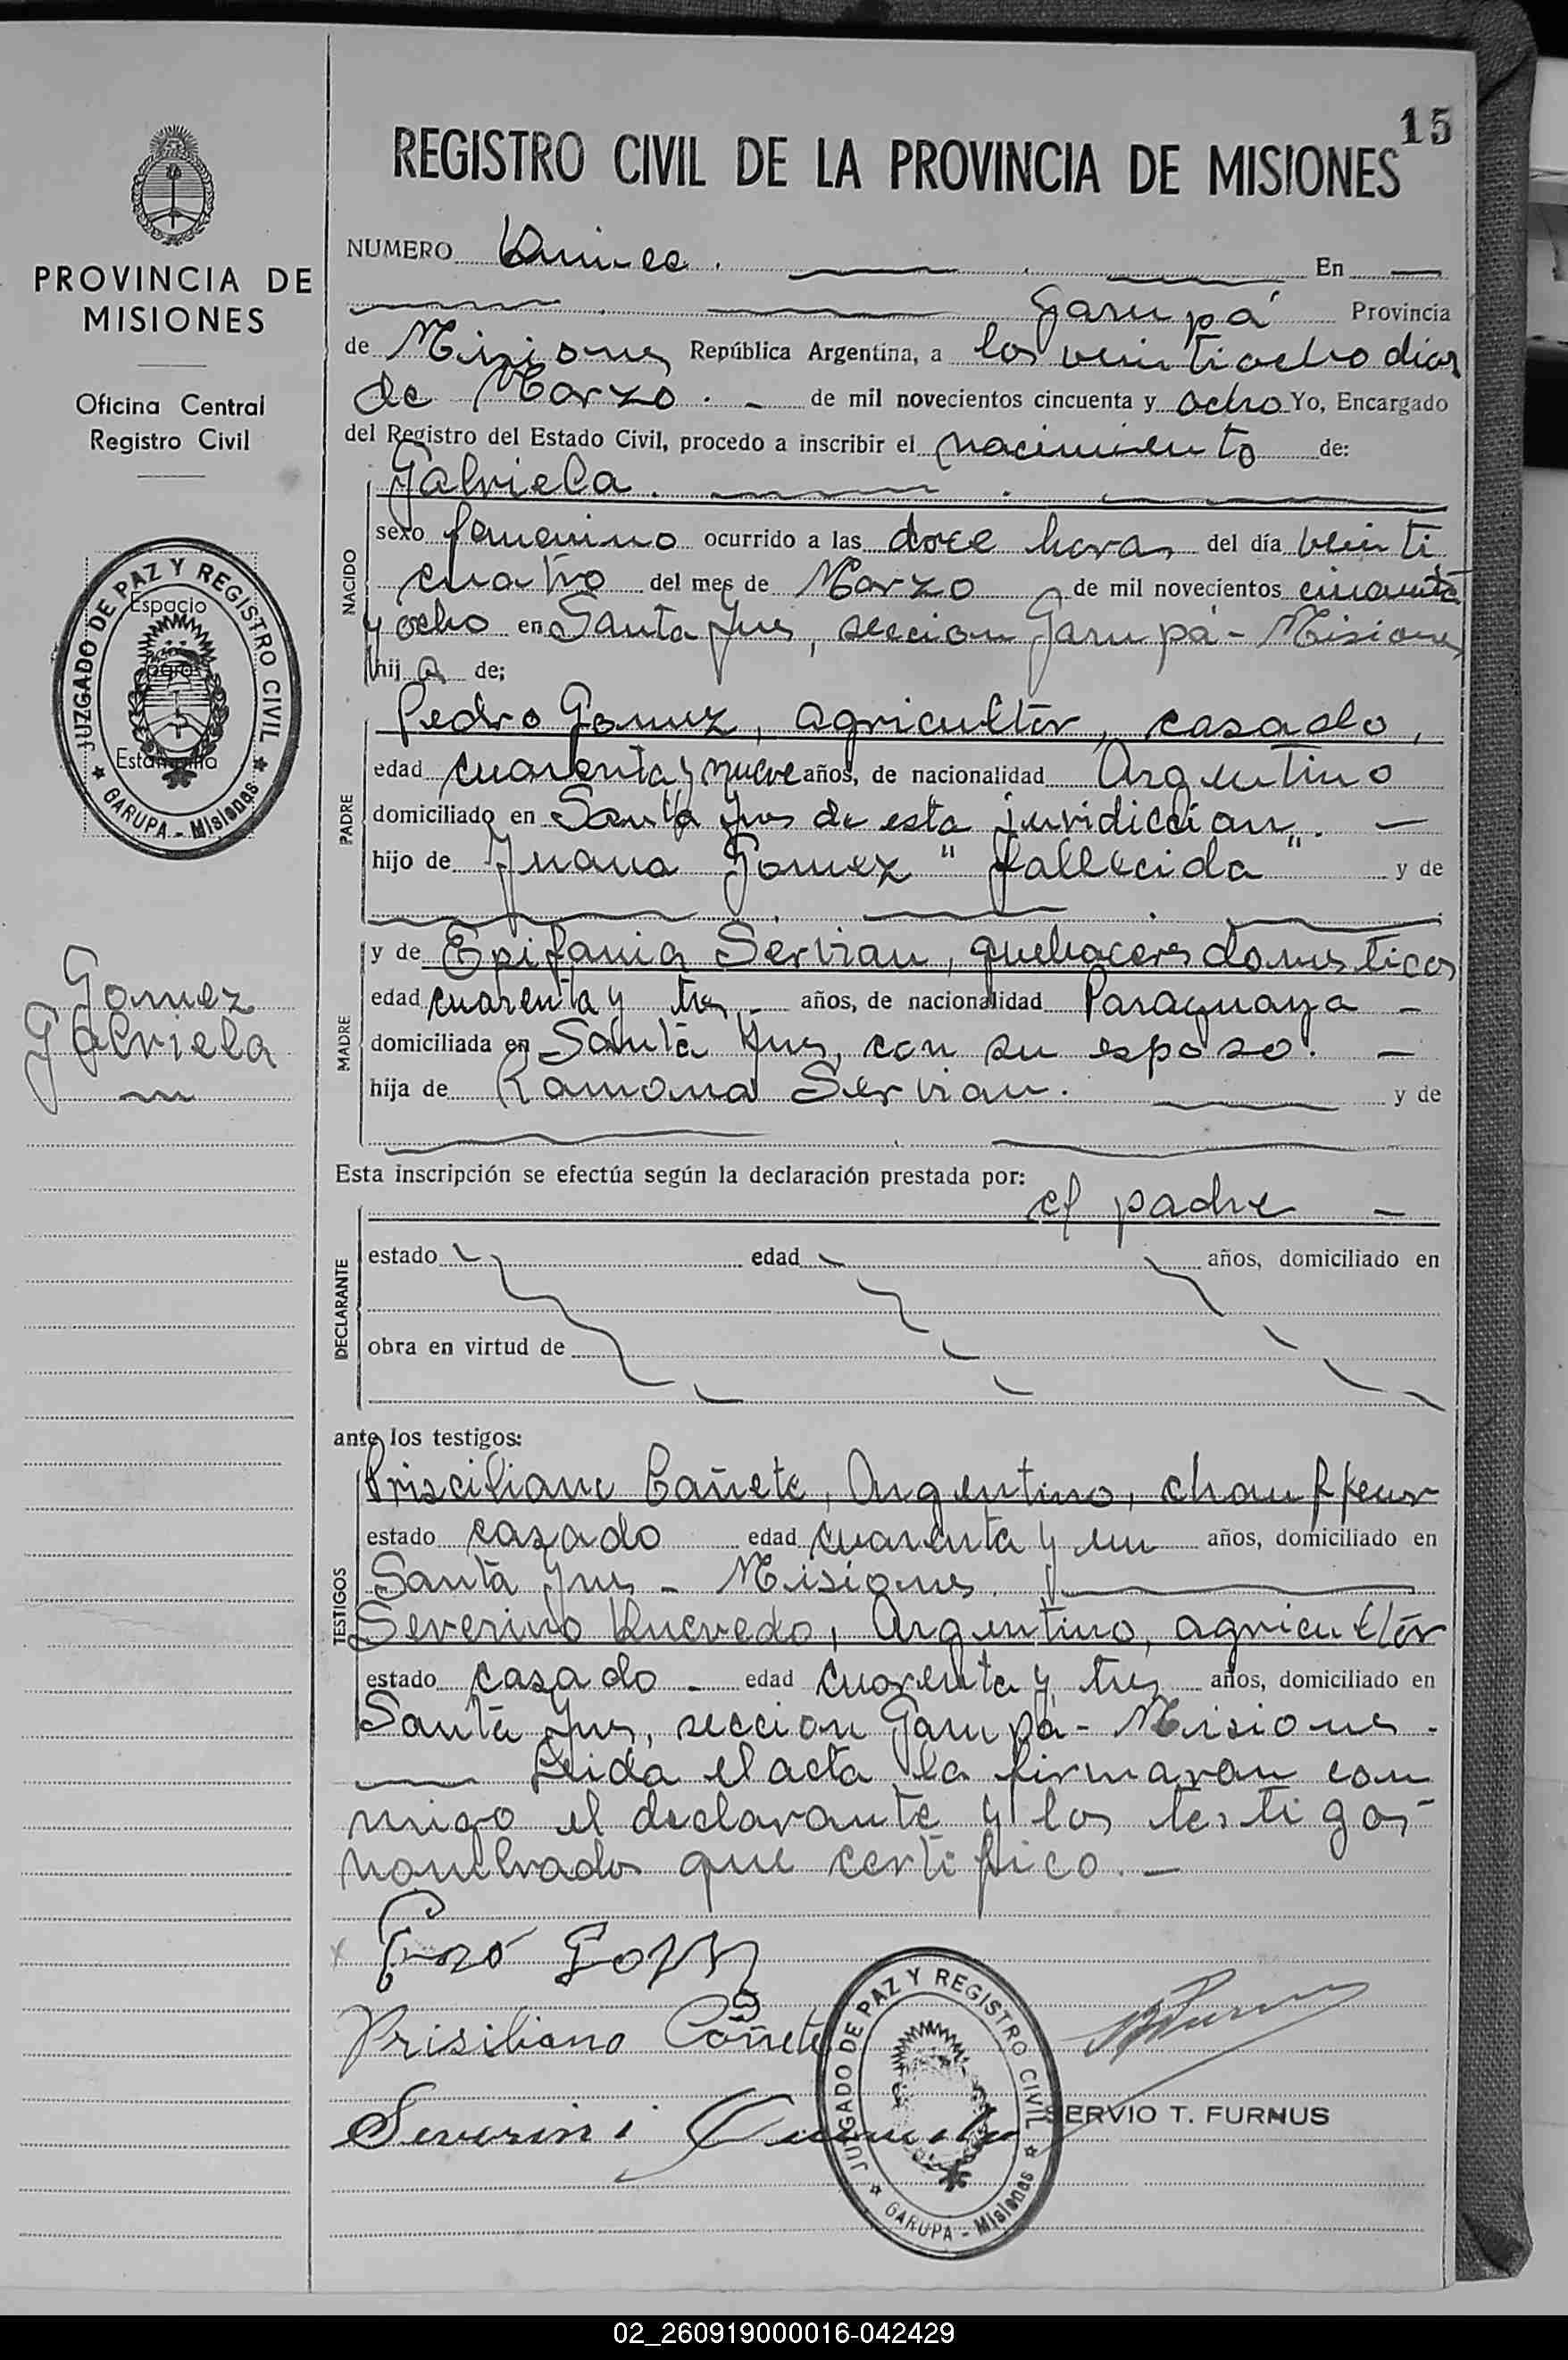 15
REGISTRO CIVIL DE LA PROVINCIA DE MISIONES
PROVINCIA DE
MISIONES
Oficina Central
Registro Civil
JUZGADO DE PAZ Y REGISTRO CIVIL
Espacio
para
Estampilla
GARUPA - Misiones
Gomez
Gabriela
NUMERO Quince. En
Garupá Provincia
de Misiones República Argentina, a los veintiocho dias
de Marzo. - de mil novecientos cincuenta y ocho Yo, Encargado
del Registro del Estado Civil, procedo a inscribir el nacimiento de:
Gabriela.
NACIDO
sexo femenino ocurrido a las doce horas del día veinti
cuatro del mes de Marzo de mil novecientos cincuenta
y ocho en Santa Ynes, seccion Garupá - Misiones
hij a de;
PADRE
Pedro Gomez, agricultor, casado,
edad cuarenta y nueve años, de nacionalidad Argentino
domiciliado en Santa Ynes de esta juridiccion. -
hijo de Juana Gomez "fallecida" y de
MADRE
y de Epifania Servian, quehaceres domesticos
edad cuarenta y tres años, de nacionalidad Paraguaya -
domiciliada en Santa Ynes, con su esposo. -
hija de Ramona Servian. y de
Esta inscripción se efectúa según la declaración prestada por:
el padre -
DECLARANTE
estado edad años, domiciliado en
obra en virtud de
ante los testigos:
TESTIGOS
Prisciliano Cañete, Argentino, chauffeur
estado casado edad cuarenta y un años, domiciliado en
Santa Ynes - Misiones.
Severino Quevedo, Argentino, agricultor
estado casado - edad cuarenta y tres años, domiciliado en
Santa Ynes, seccion Garupá - Misiones.
Leida el acta la firmaron con
migo el declarante y los testigos
nombrados que certifico. -
Prisiliano Cañete
Severin
JUZGADO DE PAZ Y REGISTRO CIVIL
GARUPA - Misiones
SERVIO T. FURNUS
02_260919000016-042429